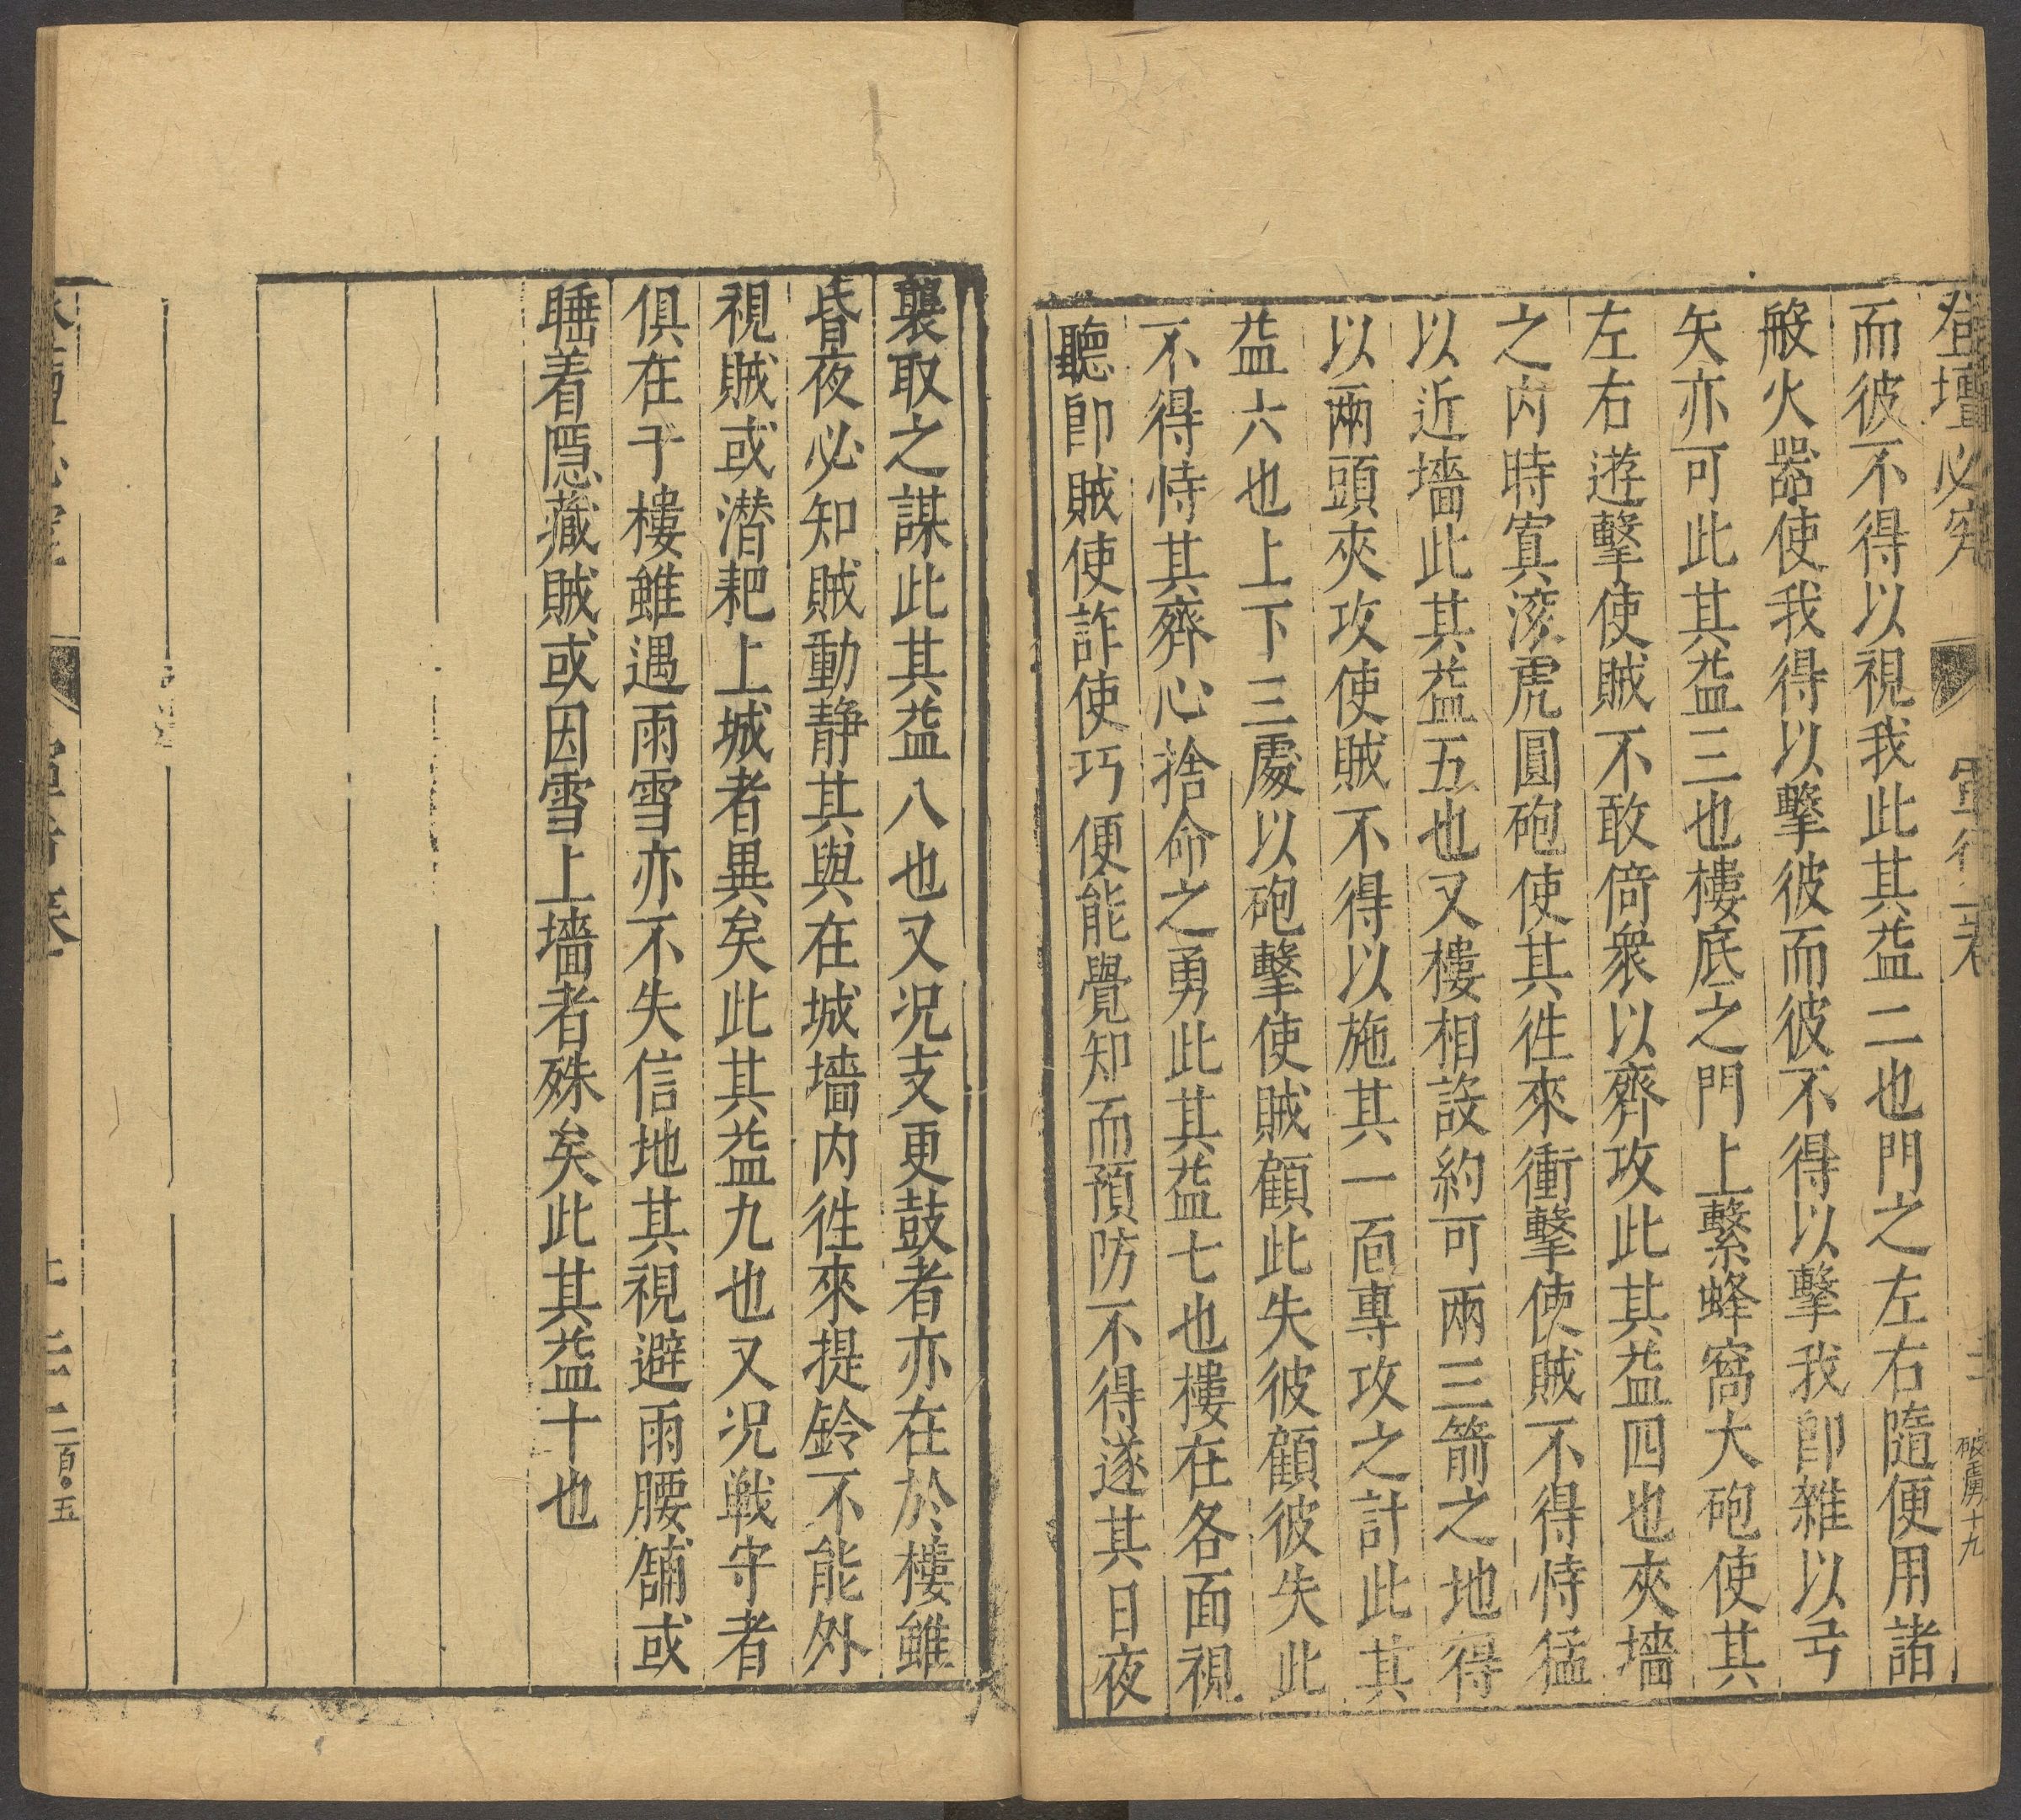 登壇必究
破虜十九
而彼不得以視我此其益二也門之左右隨便用諸
般火器使我得以擊彼而彼不得以擊我卽雜以弓
矢亦可此其益三也樓底之門上繫蜂窩大砲使其
左右遊擊使賊不敢倚衆以齊攻此其益四也夾墻
之内時寘滚虎圓砲使其徃來衝擊使賊不得恃猛
以近墻此其益五也又樓相設約可兩三箭之地得
以兩頭夾攻使賊不得以施其一面專攻之計此其
益六也上下三處以砲擊使賊顧此失彼顧彼失此
不得恃其齊心捨命之勇此其益七也樓在各面視
聽卽賊使詐使巧便能覺知而預防不得遂其日夜
襲取之謀此其益八也又况支更鼓者亦在於樓雖
昏夜必知賊動静其與在城墻内徃來提鈴不能外
視賊或潜耙上城者異矣此其益九也又况戰守者
俱在于樓雖遇雨雪亦不失信地其視避雨腰舖或
睡着隱藏賊或因雪上墻者殊矣此其益十也
二百〇五